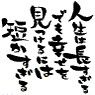 人生は長すぎる
でも幸せを
見つけるには
短かすぎる